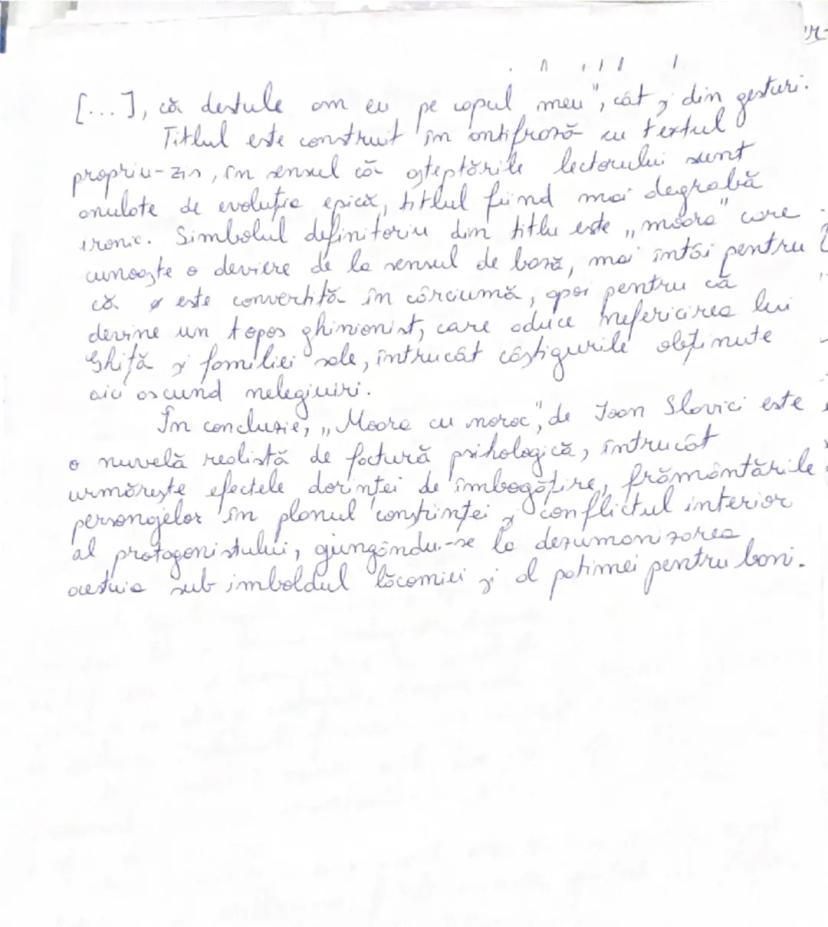 [...], că destule am eu pe capul meu", cât și din gesturi.
Titlul este construit în antifrază cu textul
propriu-zis, în sensul că așteptările lectorului sunt
anulate de evoluția epică, titlul fiind mai degrabă
ironic. Simbolul definitoriu din titlu este „moara" care
cunoaște o deviere de la sensul de bază, mai întâi pentru
că este convertită în cârciumă, apoi pentru că
devine un topos ghinionist, care aduce nefericirea lui
Ghiță și familiei sale, întrucât câștigurile obținute
aici ascund nelegiuiri.
În concluzie, „Moara cu noroc", de Ioan Slavici este
o nuvelă realistă de factură psihologică, întrucât
urmărește efectele dorinței de îmbogățire, frământările
personajelor în planul conștinței și conflictul interior
al protagonistului, ajungându-se la dezumanizarea
acestuia sub imboldul lăcomiei și al patimei pentru bani.